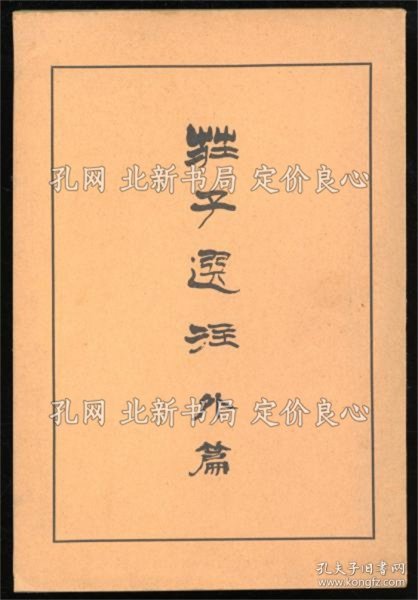 莊子選注 外篇
孔网 北新书局 定价良心
孔网 北新书局 定价良心
孔夫子旧书网
www.kongfz.com